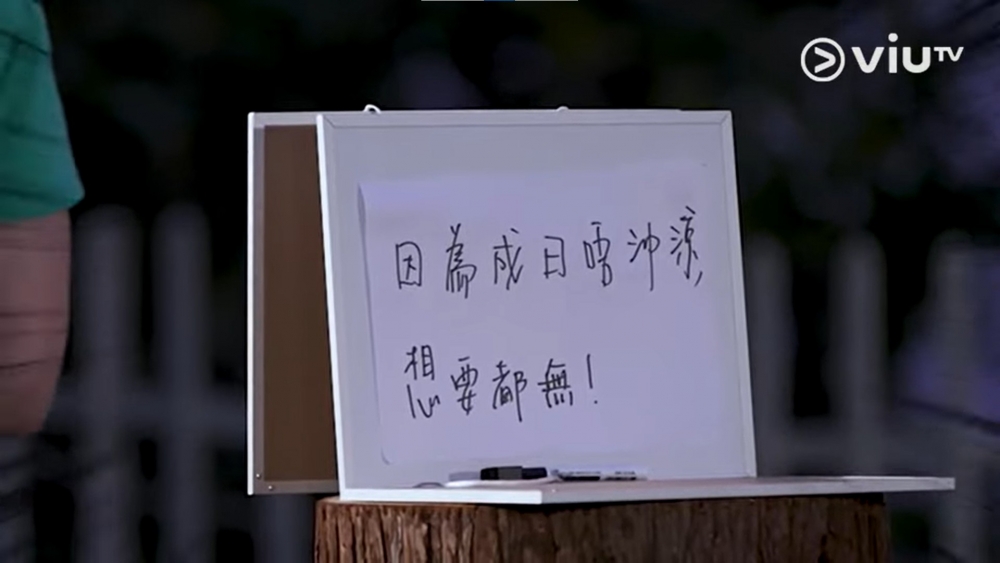 viuTV
因為成日沖涼,
想要都無!